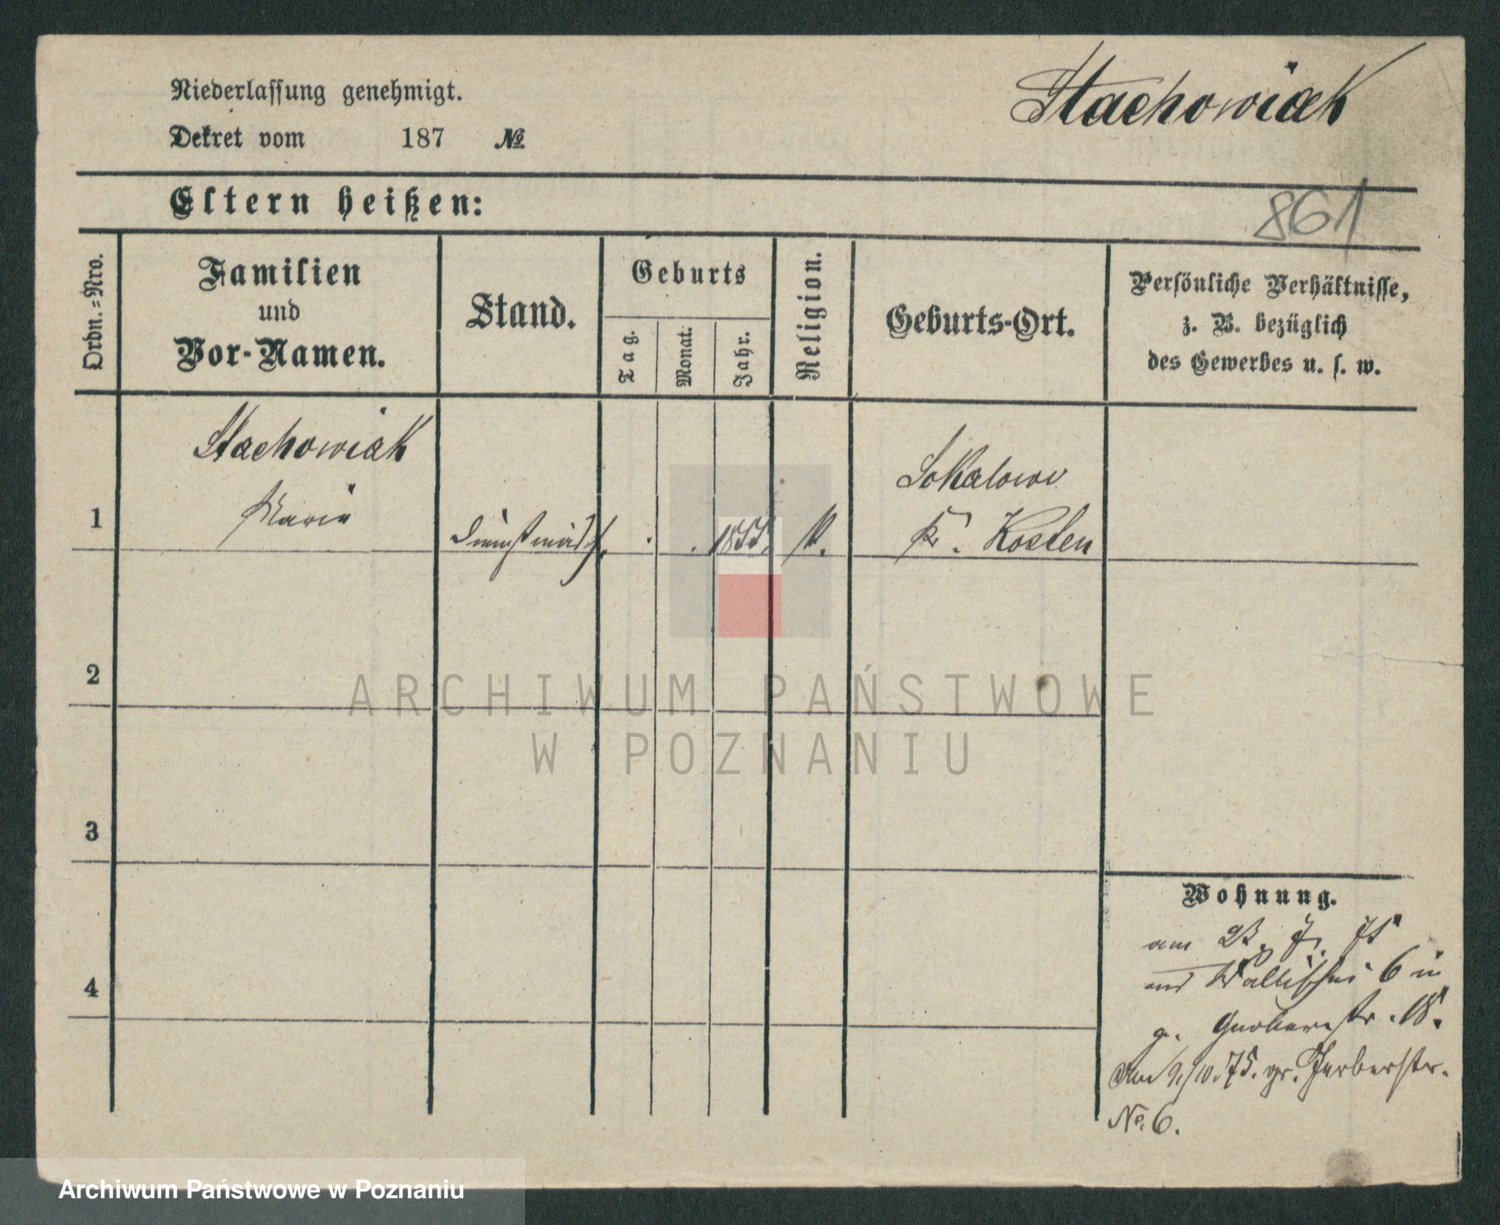 Niederlassung genehmigt.
Stachowiak
Dekret vom 187 №
Eltern heißen:
861
Ordn.=Nro.
Familien
und
Vor-Namen.
Stand.
Geburts
Tag.
Monat.
Jahr.
Religion.
Geburts-Ort.
Persönliche Verhältnisse,
z. B. bezüglich
des Gewerbes u. s. w.
1
Stachowiak
Maria
Dienstmädch.
1855.
k.
Sokolowo
Kr. Kosten
2
ARCHIWUM PAŃSTWOWE
W POZNANIU
3
Wohnung.
am 75
Wallischei 6 in
4
g. Gerberstr. 18.
9/10.75. gr. Gerberstr.
No. 6.
Archiwum Państwowe w Poznaniu